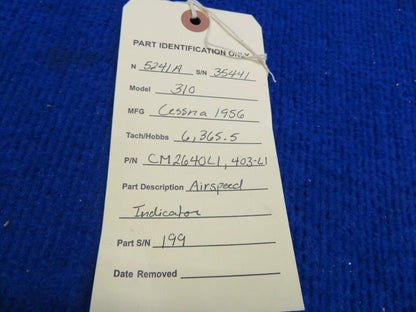 PART IDENTIFICATION ONLY
N 5241A S/N 35441
Model 310
MFG Cessna 1956
Tach/Hobbs 6,365.5
P/N CM2640L1, 403-L1
Part Description Airspeed
Indicator
Part S/N 199
Date Removed